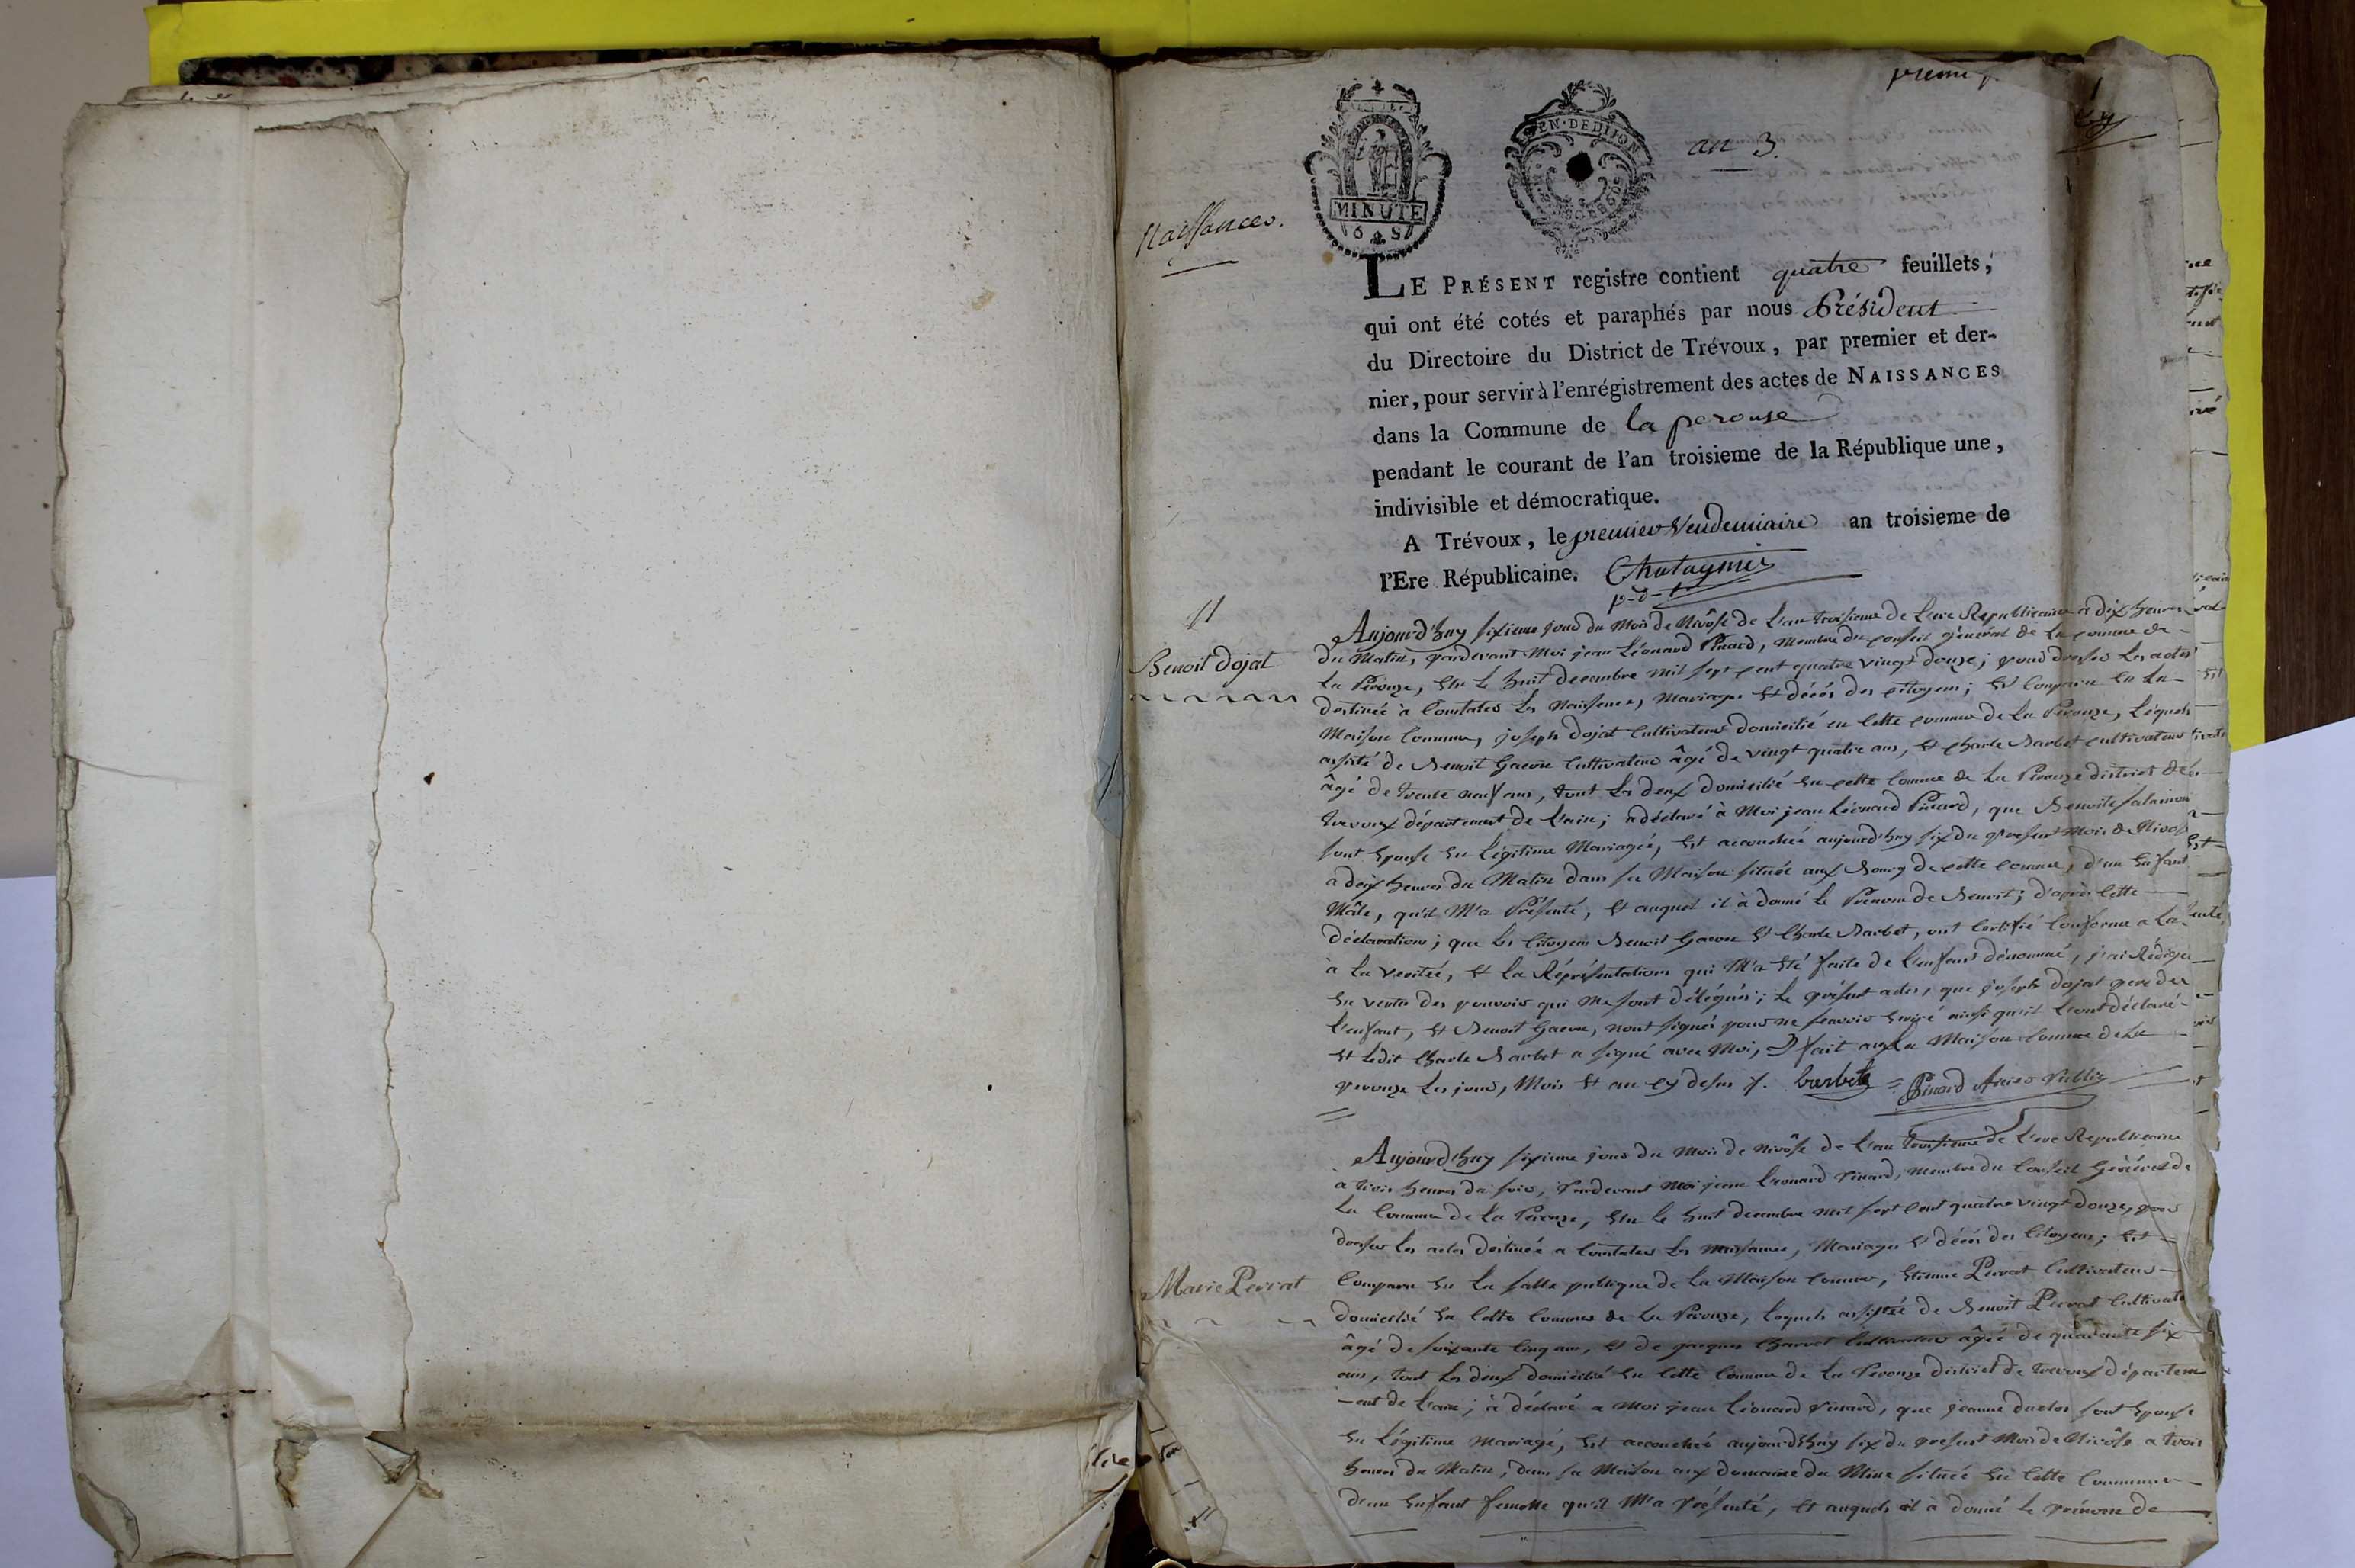 premier
an 3.
MINUTE
6 S
EN. DE DIJON
Naissances.
LE PRÉSENT registre contient quatre feuillets,
qui ont été cotés et paraphés par nous Président
du Directoire du District de Trévoux, par premier et der-
nier, pour servir à l'enrégistrement des actes de NAISSANCES
dans la Commune de la perouse
pendant le courant de l'an troisieme de la République une,
indivisible et démocratique.
A Trévoux, le premier Vendemiaire an troisieme de
l'Ere Républicaine. Chataignier
p-d-t
11
Benoit Dojat
Aujourd'huy sixieme jour du Mois de Nivôse de L'an troisieme de L'ere Republicaine a dix heures
du Matin, pardevant Moi jean Léonard Pinard, Membre du Conseil général de la commune de
La Pérouze, Elu le huit decembre mil sept cent quatre vingt douze; pour dresser les actes
destinée à Constater les Naissences, Mariages Et décés des citoyens; Est Comparu En La
Maison Commune, joseph Dojat Cultivateur domicilié en Cette commune de La Perouze, Lequels
assisté de Benoit Gacon Cultivateur âgé de vingt quatre ans, et Charle Barbet cultivateur
âgé de trente neuf ans, tout les deux domicilié En cette Comune de La Perouze district de
trevoux département de L'ain; a déclaré à Moi jean Léonard Pinard, que Benoite Salamon
sont Epouse En Légitime Mariageé, Est accouchée aujourd'huy six du present Mois de Nivose
a deix heures du Matin dans sa Maison située aux Bourg de cette comune, d'un Enfant
Mâle, qu'il M'a Présenté, Et auquel il à donné le Prenom de Benoit; d'après Cette
déclaration; que les Citoyens Benoit Gacon Et Charle Barbet, ont Certifié Conforme a La
à la veritée, Et la Réprésentation qui M'a Eté faite de L'enfant dénommé, j'ai Rédigé
En vertu des pouvoir qui me sont délégués; le présent actes, que joseph dojat pere de
L'enfant, Et Benoit Gacon, n'ont signés pour ne scavoir Ecriré ainsi qu'il L'ont déclaré
Et Ledit Charle Barbet a signé avec Moi, fait aux La Maison Comune de La
perouze Les jour, Mois Et an cy desus. barbet = Pinard oficier Public
Aujourd'huy sixieme jour du Mois de Nivôse de L'an troisieme de L'ere Republicaine
a trois heures du soir, Pardevant Moi jean Leonard Pinard, Membre du Conseil Général de
La Commune de La Pérouze, Elu le huit decembre mil sept Cent quatre vingt douze, pour
dresser les actes destinée a Constater les naissances, Mariages Et décés des Citoyens; Est
Marie Perrat
Comparu En La salle publique de La Maison Comune, Etienne Perrat Cultivateur
domicilié En Cette Commune de La Pérouze, Lequels assistée de Benoit Perrat Cultivate
âgé de soixante Cinq ans, Et de jacques Charvet Cultivateur âgéé de quarante six
ans, tout les deux domicilié En Cette Comune de La Pérouze district de trevoux départeme
-ent de L'ain; à déclaré a Moi jean Léonard Pinard, que jeanne duclos sont Epouse
En Légitime Mariagé, Est accouchée aujourd'huy six du present Mois de Nivôse a trois
heures du Matin, dans sa Maison aux domaine du Mine située En Cette Commune
d'un Enfant femelle qu'il M'a Présenté, Et auquels il à donné le prénom de